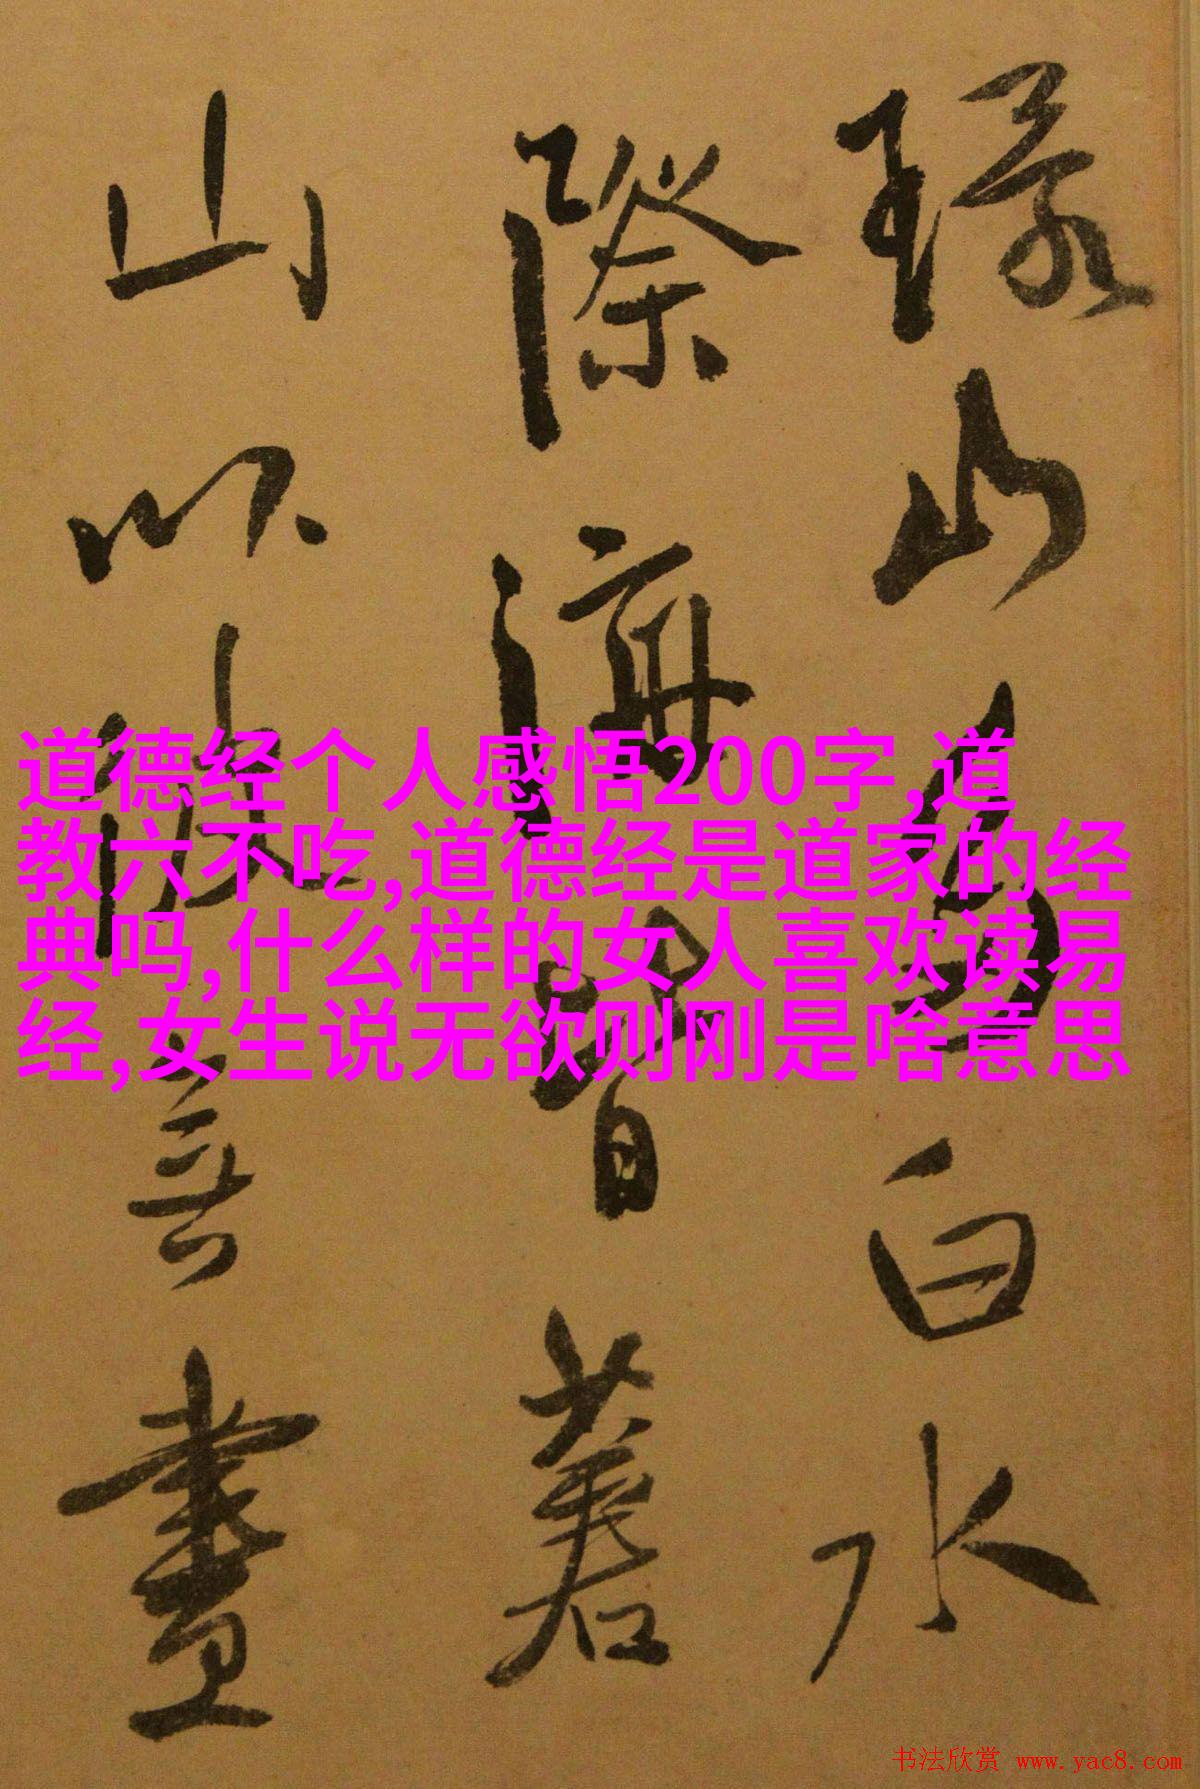 道德经个人感悟200字,道
教六不吃,道德经是道家的经
典吗,什么样的女人喜欢读易
经,女生说无欲则刚是啥意思
環山多白水
際海皆著
山以無畫
书法欣赏 www.yac8.com